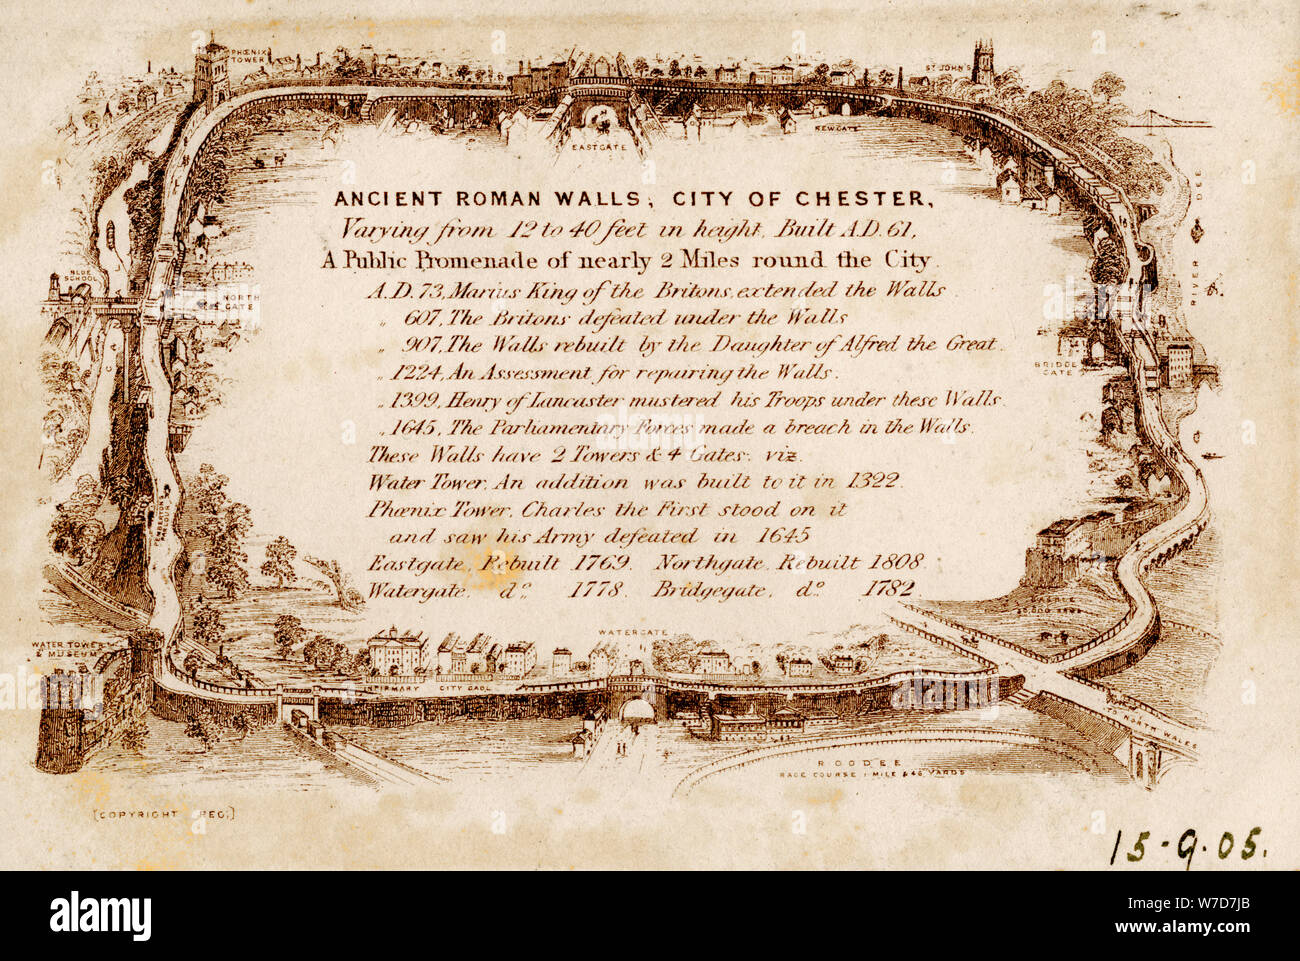 PHŒNIX
TOWER
ST JOHN'S
EASTGATE
NEWGATE
RIVER DEE
BLUE
SCHOOL
NORTH
GATE
BRIDGE
GATE
ANCIENT ROMAN WALLS, CITY OF CHESTER,
Varying from 12 to 40 feet in height, Built A.D. 61,
A Public Promenade of nearly 2 Miles round the City.
A.D. 73, Marius King of the Britons, extended the Walls
„ 607, The Britons defeated under the Walls
„ 907, The Walls rebuilt by the Daughter of Alfred the Great.
„ 1224, An Assessment for repairing the Walls.
„ 1399, Henry of Lancaster mustered his Troops under these Walls.
„ 1645, The Parliamentary Forces made a breach in the Walls.
These Walls have 2 Towers & 4 Gates, viz.
Water Tower, An addition was built to it in 1322.
Phœnix Tower, Charles the First stood on it
and saw his Army defeated in 1645
Eastgate, Rebuilt 1769. Northgate, Rebuilt 1808.
Watergate, do. 1778. Bridgegate, do. 1782.
WATER TOWER
& MUSEUM
WATERGATE
INFIRMARY CITY GAOL
NORTH WALES
ROODEE
RACE COURSE 1 MILE & 46 YARDS
[COPYRIGHT REG.]
15-9.05.
alamy
alamy
Image ID: W7D7JB
www.alamy.com